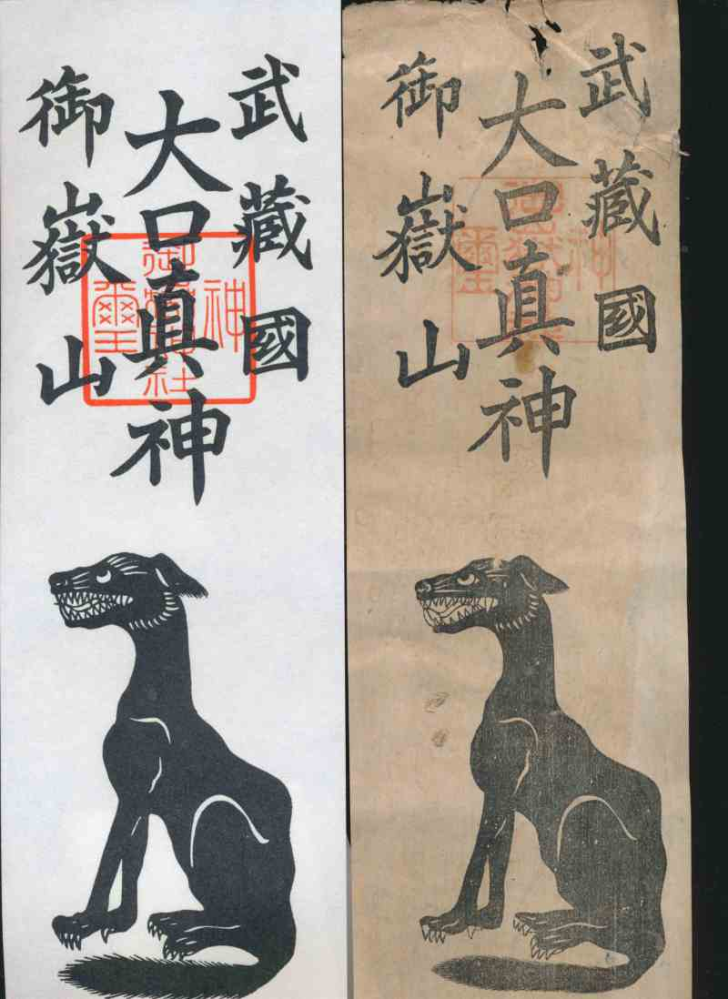 武藏國
大口真神
御嶽山
神
璽
武藏國
大口真神
御嶽山
神
璽